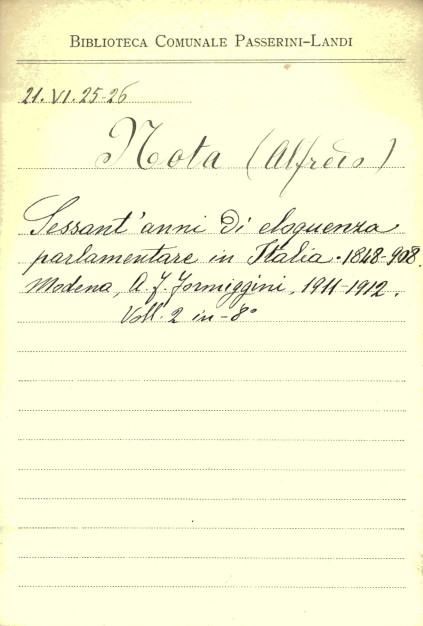 BIBLIOTECA COMUNALE PASSERINI-LANDI
21. VI. 25-26
Nota (Alfredo)
Sessant'anni di eloquenza
parlamentare in Italia. 1848-908.
Modena, A. F. Formiggini, 1911-1912.
Voll. 2 in-8°